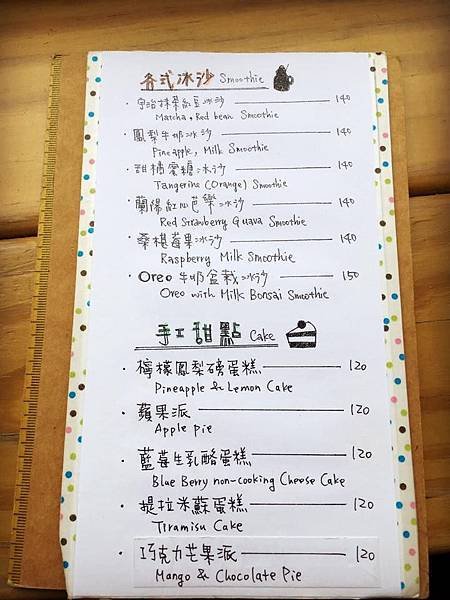 各式冰沙 Smoothie
· 宇治抹茶紅豆冰沙 140
Matcha, Red bean Smoothie
· 鳳梨牛奶冰沙 140
Pineapple, Milk Smoothie
· 甜橘蜜糖冰沙 140
Tangerine (Orange) Smoothie
· 蘭陽紅心芭樂冰沙 140
Red Strawberry Guava Smoothie
· 桑椹莓果冰沙 140
Raspberry Milk Smoothie
· Oreo 牛奶盆栽冰沙 150
Oreo with Milk Bonsai Smoothie
手工甜點 Cake
· 檸檬鳳梨磅蛋糕 120
Pineapple & Lemon Cake
· 蘋果派 120
Apple Pie
· 藍莓生乳酪蛋糕 120
Blue Berry non-cooking Cheese Cake
· 提拉米蘇蛋糕 120
Tiramisu Cake
· 巧克力芒果派 120
Mango & Chocolate Pie